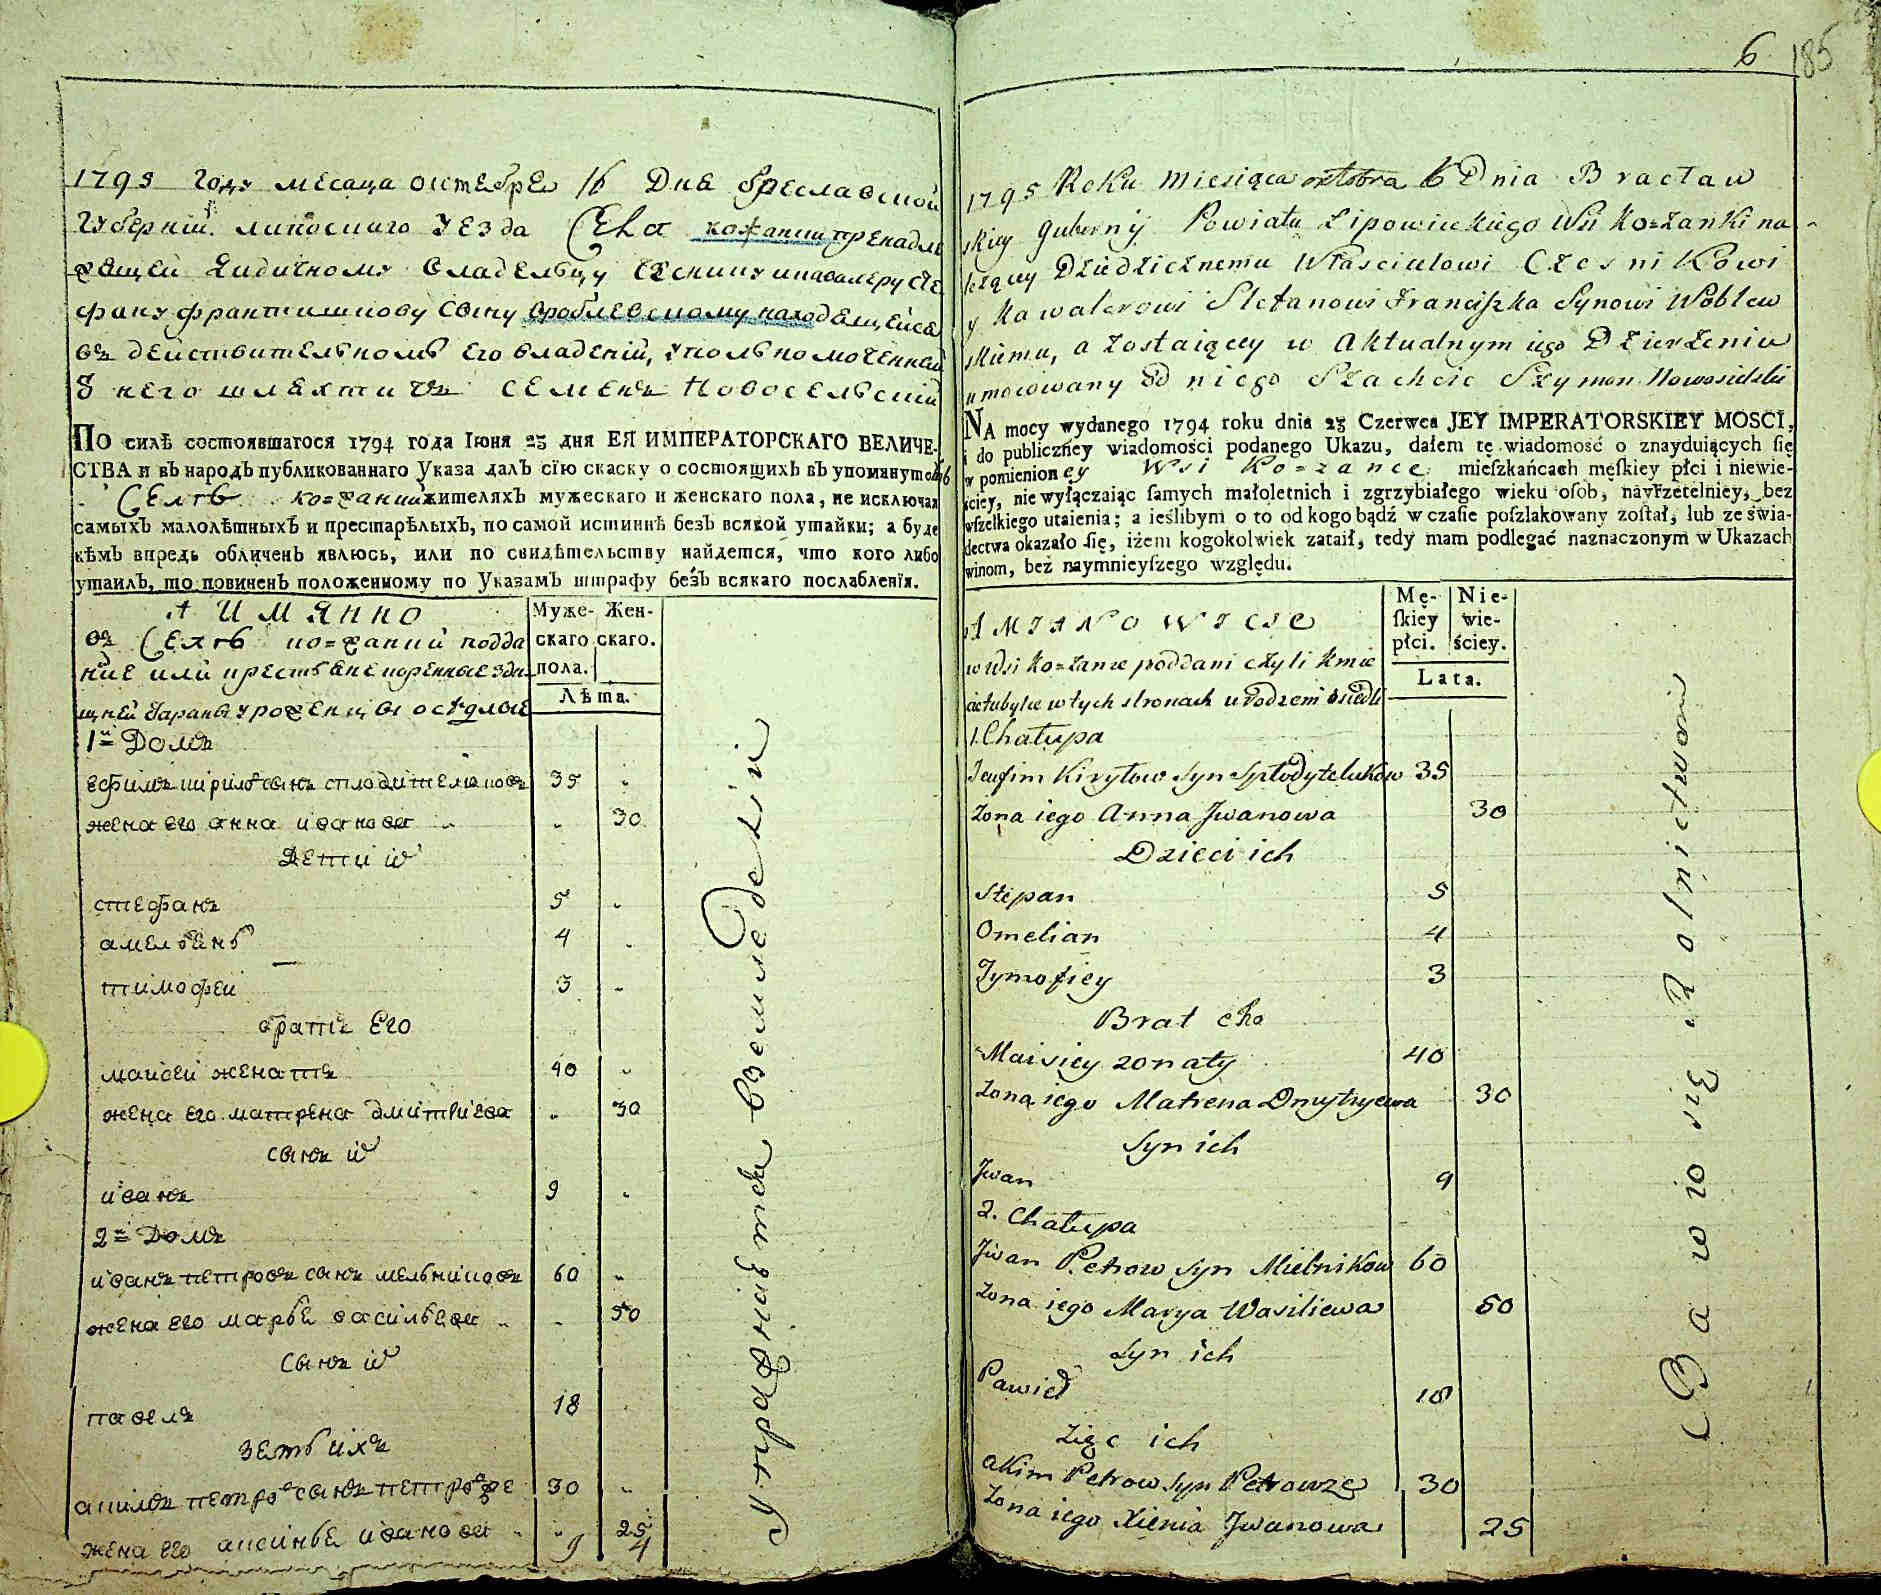 1795 Году месаца октебре 16 Дне бреславской
Губерніи липоскаго уезда Села кожанки пренадле
жащей дидичному владельцу чеснику и кавалеру сте
фану франтишкову сыну вроблевскому находещейсе
въ действительномъ его владеніи, уполъномоченний
о него шлехтичъ семенъ Новоселъскій
По силѣ состоявшагося 1794 года Іюня 23 дня ЕЯ ИМПЕРАТОРСКАГО ВЕЛИЧЕ-
СТВА и въ народъ публикованнаго Указа далъ сїю скаску о состоящихъ въ упомянутомъ
Селѣ ко=жанки жителяхъ мужескаго и женскаго пола, не исключая
самыхъ малолѣтныхъ и престарѣлыхъ, по самой истиннѣ безъ всякой утайки; а буде
кѣмъ впредь обличенъ явлюсь, или по свидѣтельству найдется, что кого либо
утаилъ, то повиненъ положенному по Указамъ штрафу безъ всякаго послабленїя.
А ИМЯННО
Муже- Жен-
въ Селѣ ко=жанки подда
скаго скаго.
ние или крестъене коренные зде
пола.
Лѣта.
шней стараны уроженцы оседлые
1й Домъ
ефимъ кирило сынъ сплодителюковъ 35
жена его анна иванова 30
Дети их
стефанъ 5
амелъенъ 4
тимофеи 3
братъ Его
маисеи женатъ 40
жена его матрена дмитриева 30
сынъ их
иванъ 9
2й Домъ
иванъ петровъ сынъ мелъниковъ 60
жена его маръе василъева 50
сынъ их
павелъ 18
зетъ ихъ
акимъ петров сынъ петровзе 30
жена его аксинъе иванова 25
9 4
упражнаютса воемледеліи
6 185
1795 Roku Miesiąca oktobra 16 Dnia Bracław
skiey Gubernij Powiatu Lipowieckiego Wsi Ko=żanki na
leżącey Dziedzicznemu Włascicielowi Czesnikowi
y Kawalerowi Stefanowi Franciszka Synowi Woblew
skiemu, a zostaiącey w Aktualnym iego Dzierżeniu
umocowany od niego Szlachcic Szymon Nowosielski
NA mocy wydanego 1794 roku dnia 23 Czerwca JEY IMPERATORSKIEY MOSCI,
i do publiczney wiadomości podanego Ukazu, dałem tę wiadomość o znayduiących ſię
w pomienioney Wsi Ko=zance mieſzkańcach męſkiey płci i niewie-
ściey, nie wyłączaiąc ſamych małoletnich i zgrzybiałego wieku oſob, nayrzetelniey, bez
wſzelkiego utaienia; a ieślibym o to od kogo bądź w czaſie poſzlakowany zoſtał, lub ze świa-
dectwa okazało ſię, iżem kogokolwiek zataił, tedy mam podlegać naznaczonym w Ukazach
winom, bez naymnieyſzego względu.
AMIANOWICIE
Mę- Nie-
ſkiey wie-
płci. ściey.
w Wsi Ko=zance poddani czyli kmie
Lata.
cie tubylce w tych stronach urodzeni osiedli
1. Chałupa
Jeufim Kiryłow syn Spłodyteluków 35
Zona iego Anna Jwanowa 30
Dzieci ich
Stepan 5
Omelian 4
Tymofiey 3
Brat eho
Maisiey zonaty 40
Zona iego Matrena Dmytryewa 30
Syn ich
Jwan 9
2. Chałupa
Jwan Petrow Syn Mielnikow 60
Zona iego Marya Wasiliewa 50
Syn ich
Pawieł 18
Zięc ich
Akim Petrow Syn Petrowze 30
Zona iego Xienia Jwanowa 25
Bawio się Rolnictwom